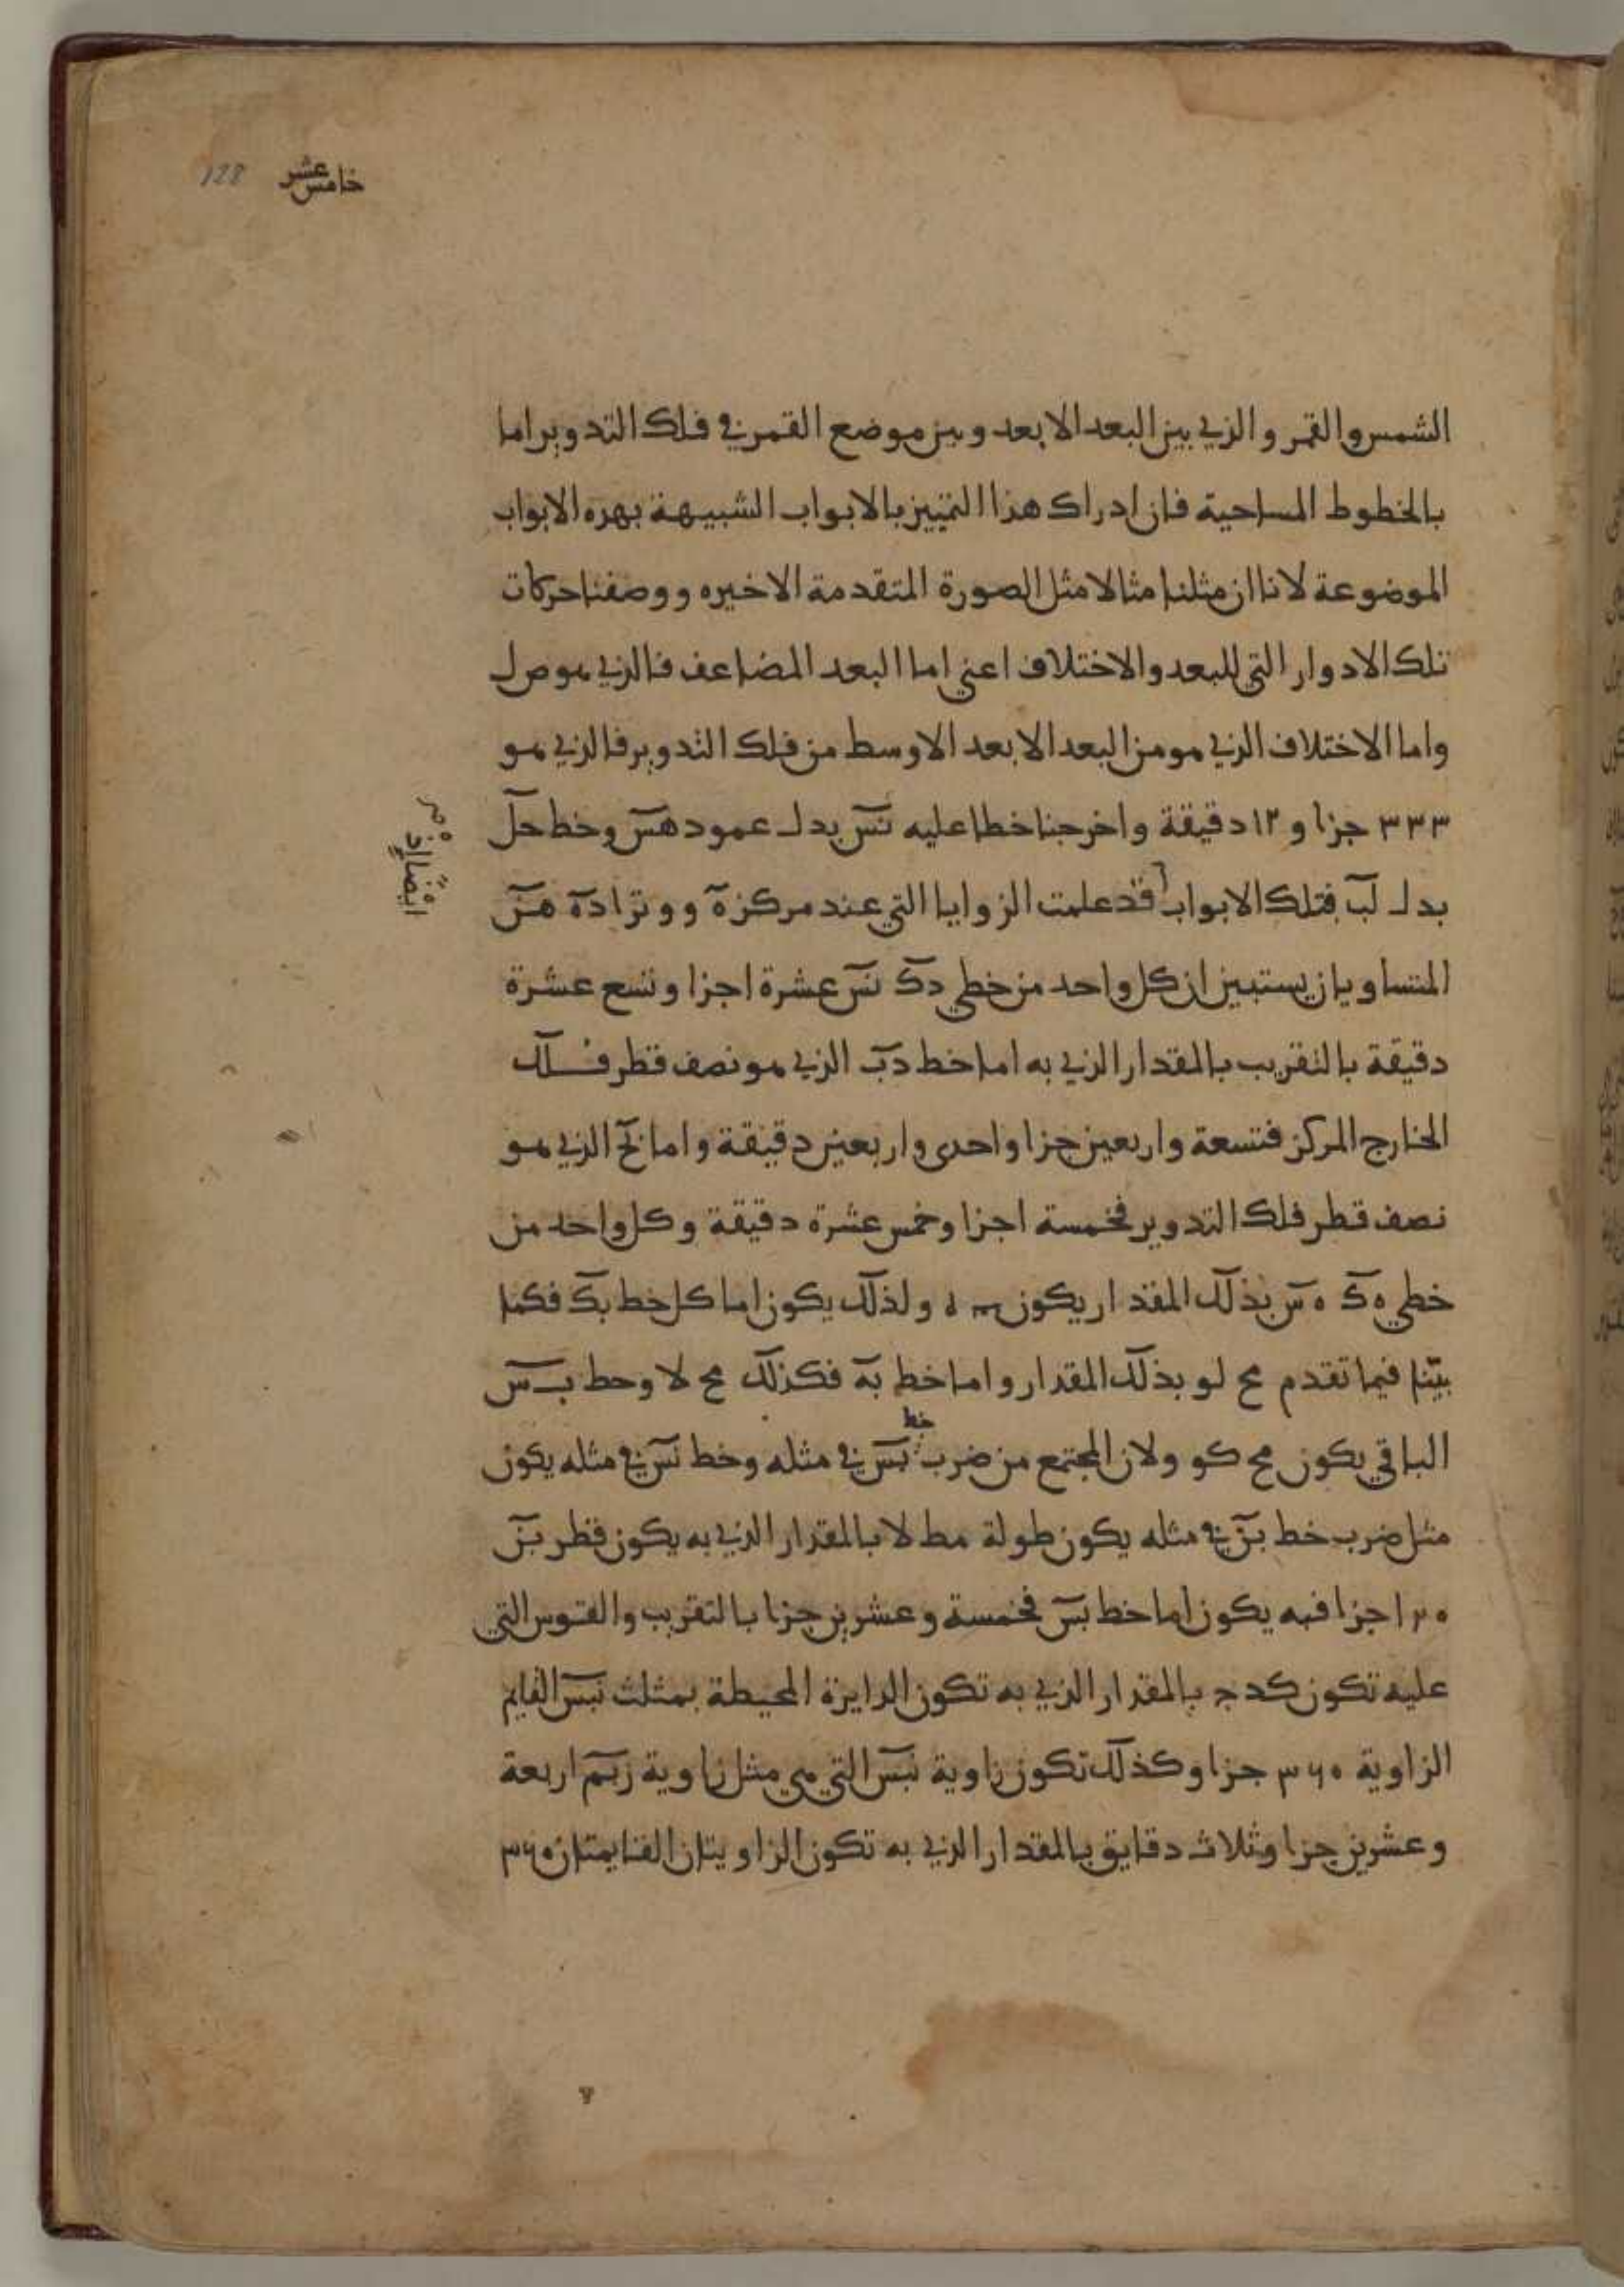 خامس عشر 128
الشمس والقمر والذي بين البعد الابعد وبين موضع القمر في فلك التدوير اما
بالخطوط المساحية فان ادراك هذا التمييز بالابواب الشبيهة بهذه الابواب
الموضوعة لانا ان مثلنا مثالا مثل الصورة المتقدمة الاخيره ووصفنا حركات
تلك الادوار التي للبعد والاختلاف اعني اما البعد المضاعف فالذي هو ص ل
واما الاختلاف الذي هو من البعد الابعد الاوسط من فلك التدوير فالذي هو
٣٣٣ جزا و ١٢ دقيقة واخرجنا خطا عليه نس بدل عمود هس وخط حل
بدل لب فتلك الابواب قد علمت الزوايا التي عند مركز ه ووترا ده هن
ايضا اذ
المتساويان يستبين ان كل واحد من خطي دك نس عشرة اجزا وتسع عشرة
دقيقة بالتقريب بالمقدار الذي به اما خط دب الذي هو نصف قطر فلك
الخارج المركز فتسعة واربعين جزا واحدى واربعين دقيقة واما نح الذي هو
نصف قطر فلك التدوير فخمسة اجزا وخمس عشرة دقيقة وكل واحد من
خطي ه ك ه س بذلك المقدار يكون ولذلك يكون اما كل خط بك فكما
بينا فيما تقدم مح لو بذلك المقدار واما خط به فكذلك مح لا وخط ب س
الباقي يكون مح كو ولان المجتمع من ضرب خط بس في مثله وخط نس في مثله يكون
مثل ضرب خط بن في مثله يكون طوله مط لا بالمقدار الذي به يكون قطر بن
١٢٠ جزا فبه يكون اما خط بس فخمسة وعشرين جزا بالتقريب والقوس التي
عليه تكون كد ج بالمقدار الذي به تكون الدايرة المحيطة بمثلث نبس القايم
الزاوية ٣٦٠ جزا وكذلك تكون زاوية نبس التي هي مثل زاوية زبم اربعة
وعشرين جزا وثلاث دقايق بالمقدار الذي به تكون الزاويتان القايمتان ٣٦٠